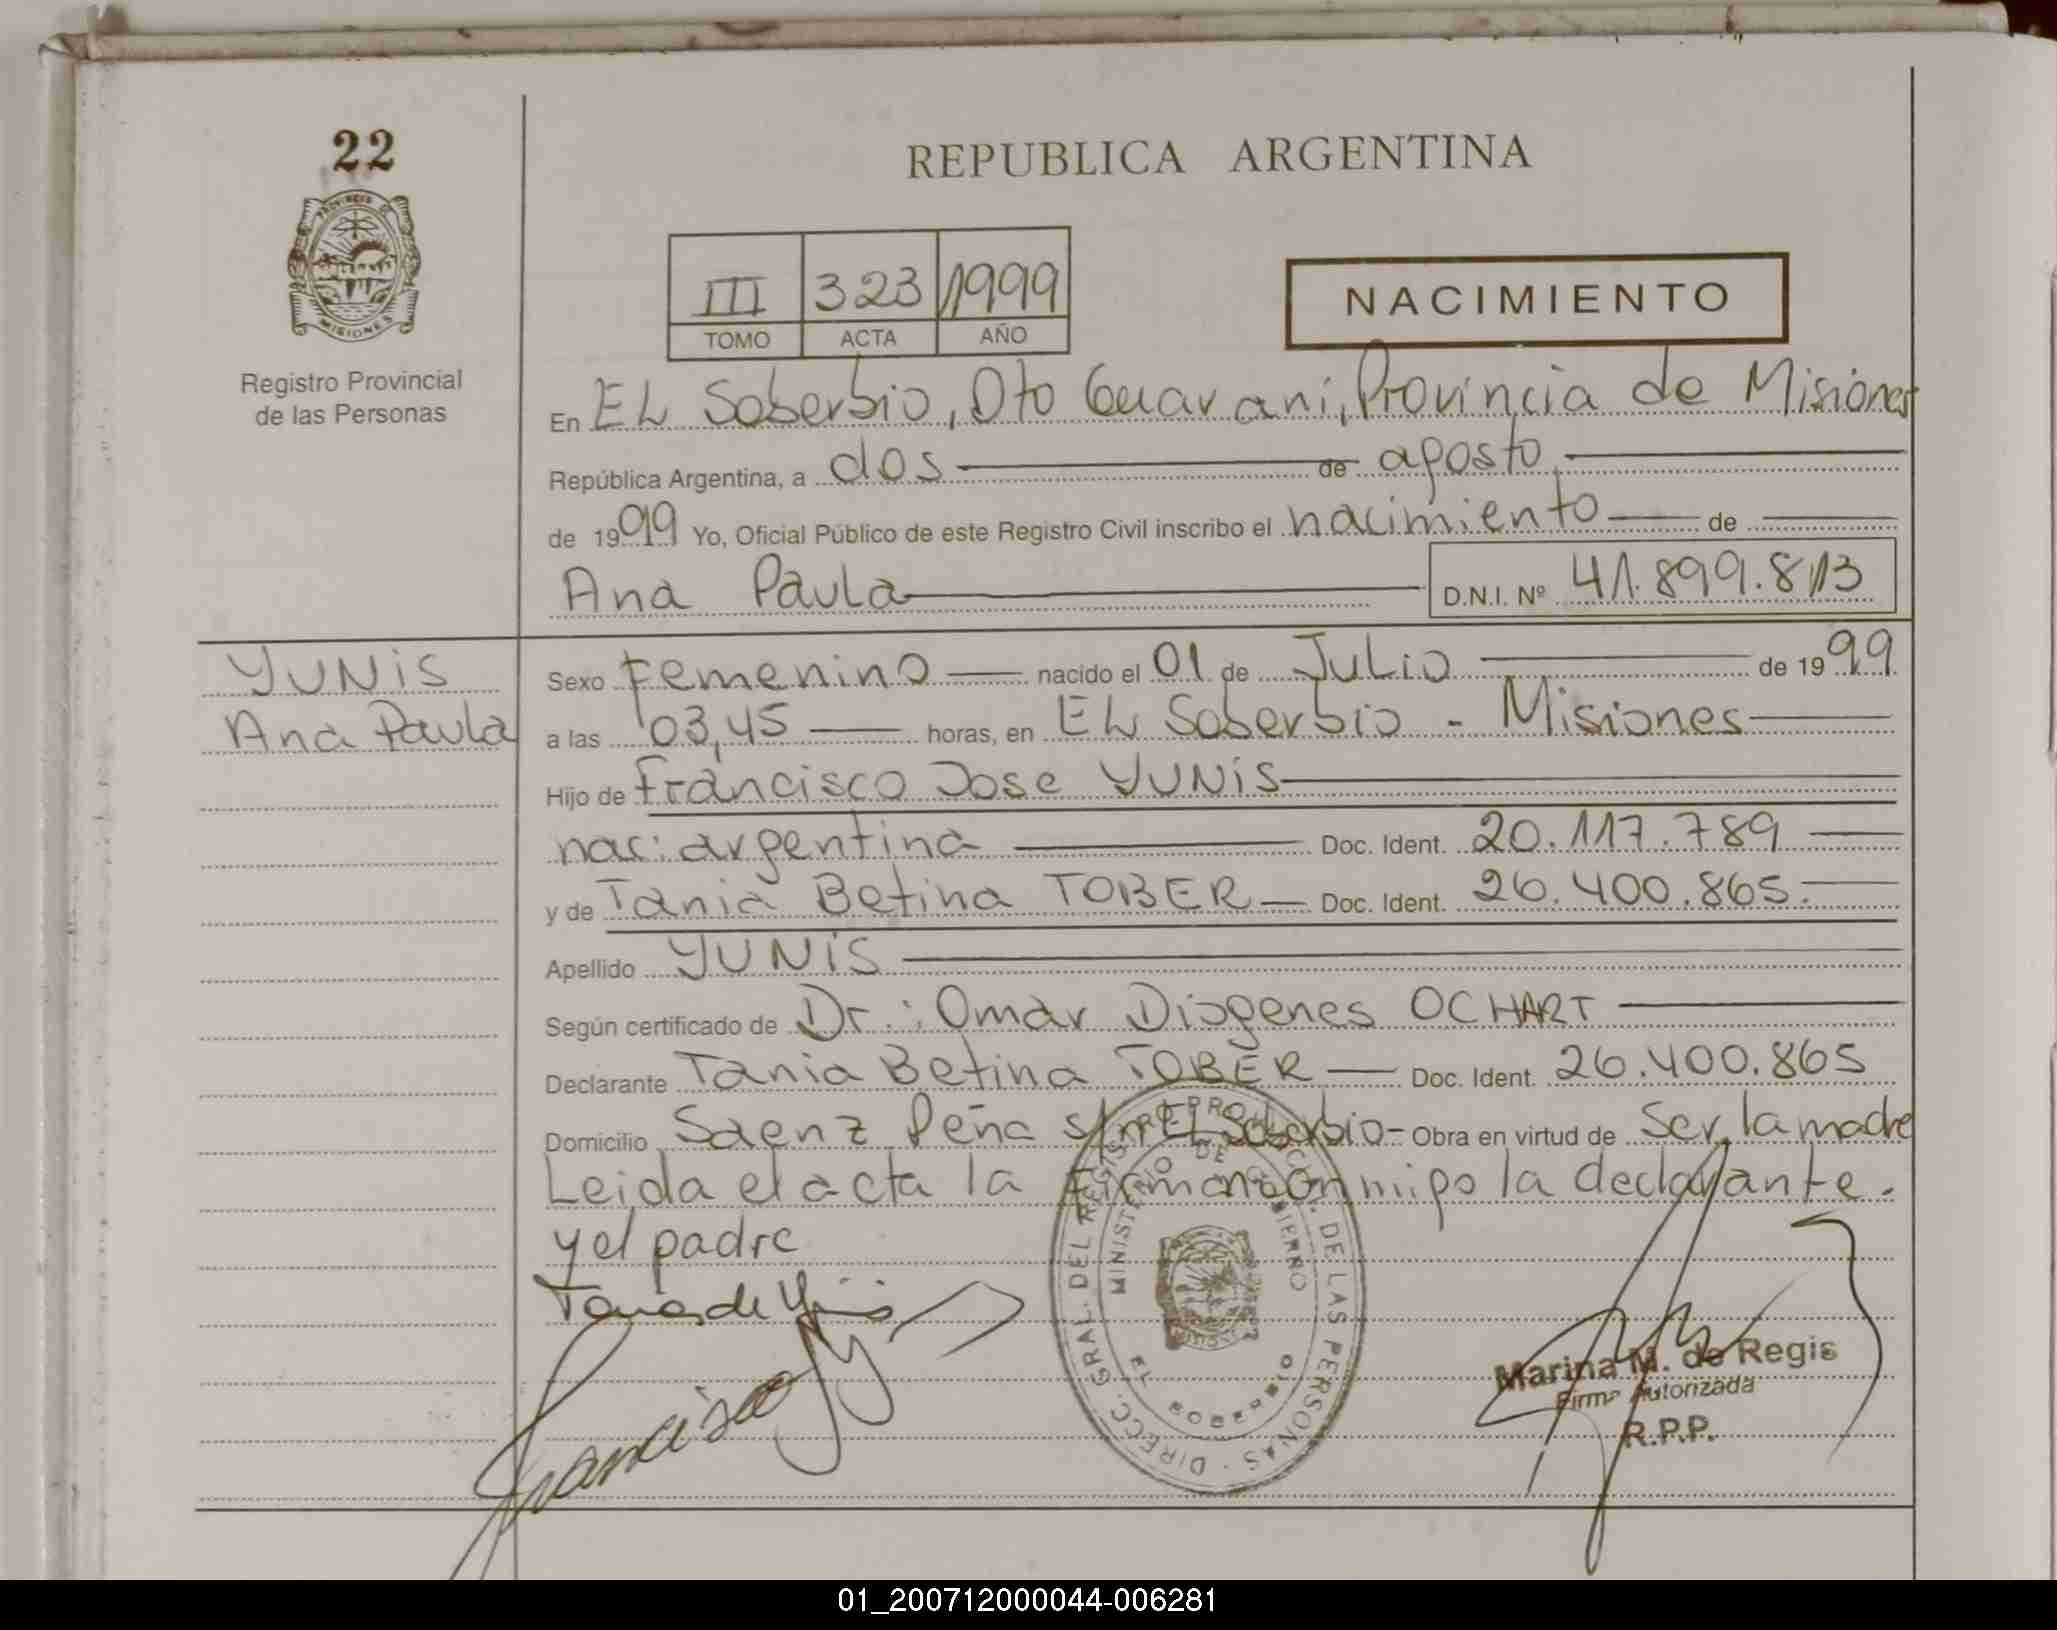 22
PROVINCIA DE
MISIONES
Registro Provincial
de las Personas
REPUBLICA ARGENTINA
III 323 1999
TOMO ACTA AÑO
NACIMIENTO
En EL Soberbio, Dto Guarani, Provincia de Misiones
República Argentina, a dos de agosto
de 1999 Yo, Oficial Público de este Registro Civil inscribo el nacimiento de
Ana Paula D.N.I. Nº 41.899.813
YUNIS
Ana Paula
Sexo Femenino nacido el 01 de JuLio de 1999
a las 03,45 horas, en EL Soberbio - Misiones
Hijo de Francisco Jose YUNIS
nac: argentina Doc. Ident. 20.117.789
y de Tania Betina TOBER Doc. Ident. 26.400.865.
Apellido YUNIS
Según certificado de Dr.: Omar Diogenes OCHART
Declarante Tania Betina TOBER Doc. Ident. 26.400.865
Domicilio Saenz Peña s/nº EL Soberbio - Obra en virtud de Ser la madre
Leida el acta la Firman con migo la declarante.
y el padre
Tania de Yunis
Francisco Y
DIRECC. GRAL. DEL REGISTRO PROVINCIAL DE LAS PERSONAS
MINISTERIO DE GOBIERNO
EL SOBERBIO
Marina M. de Regis
Firma Autorizada
R.P.P.
01_200712000044-006281